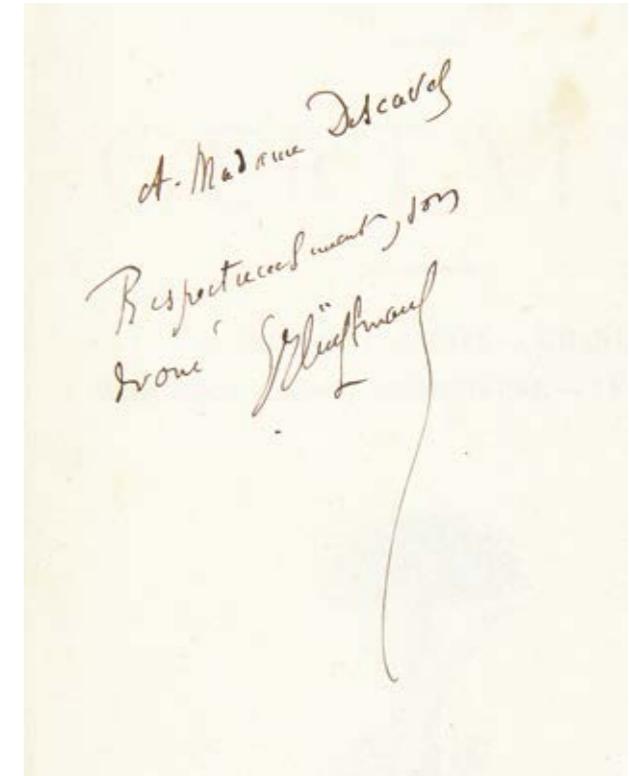 A. Madame Descaves
Respectueusement, son
dévoué GHuÿsmans